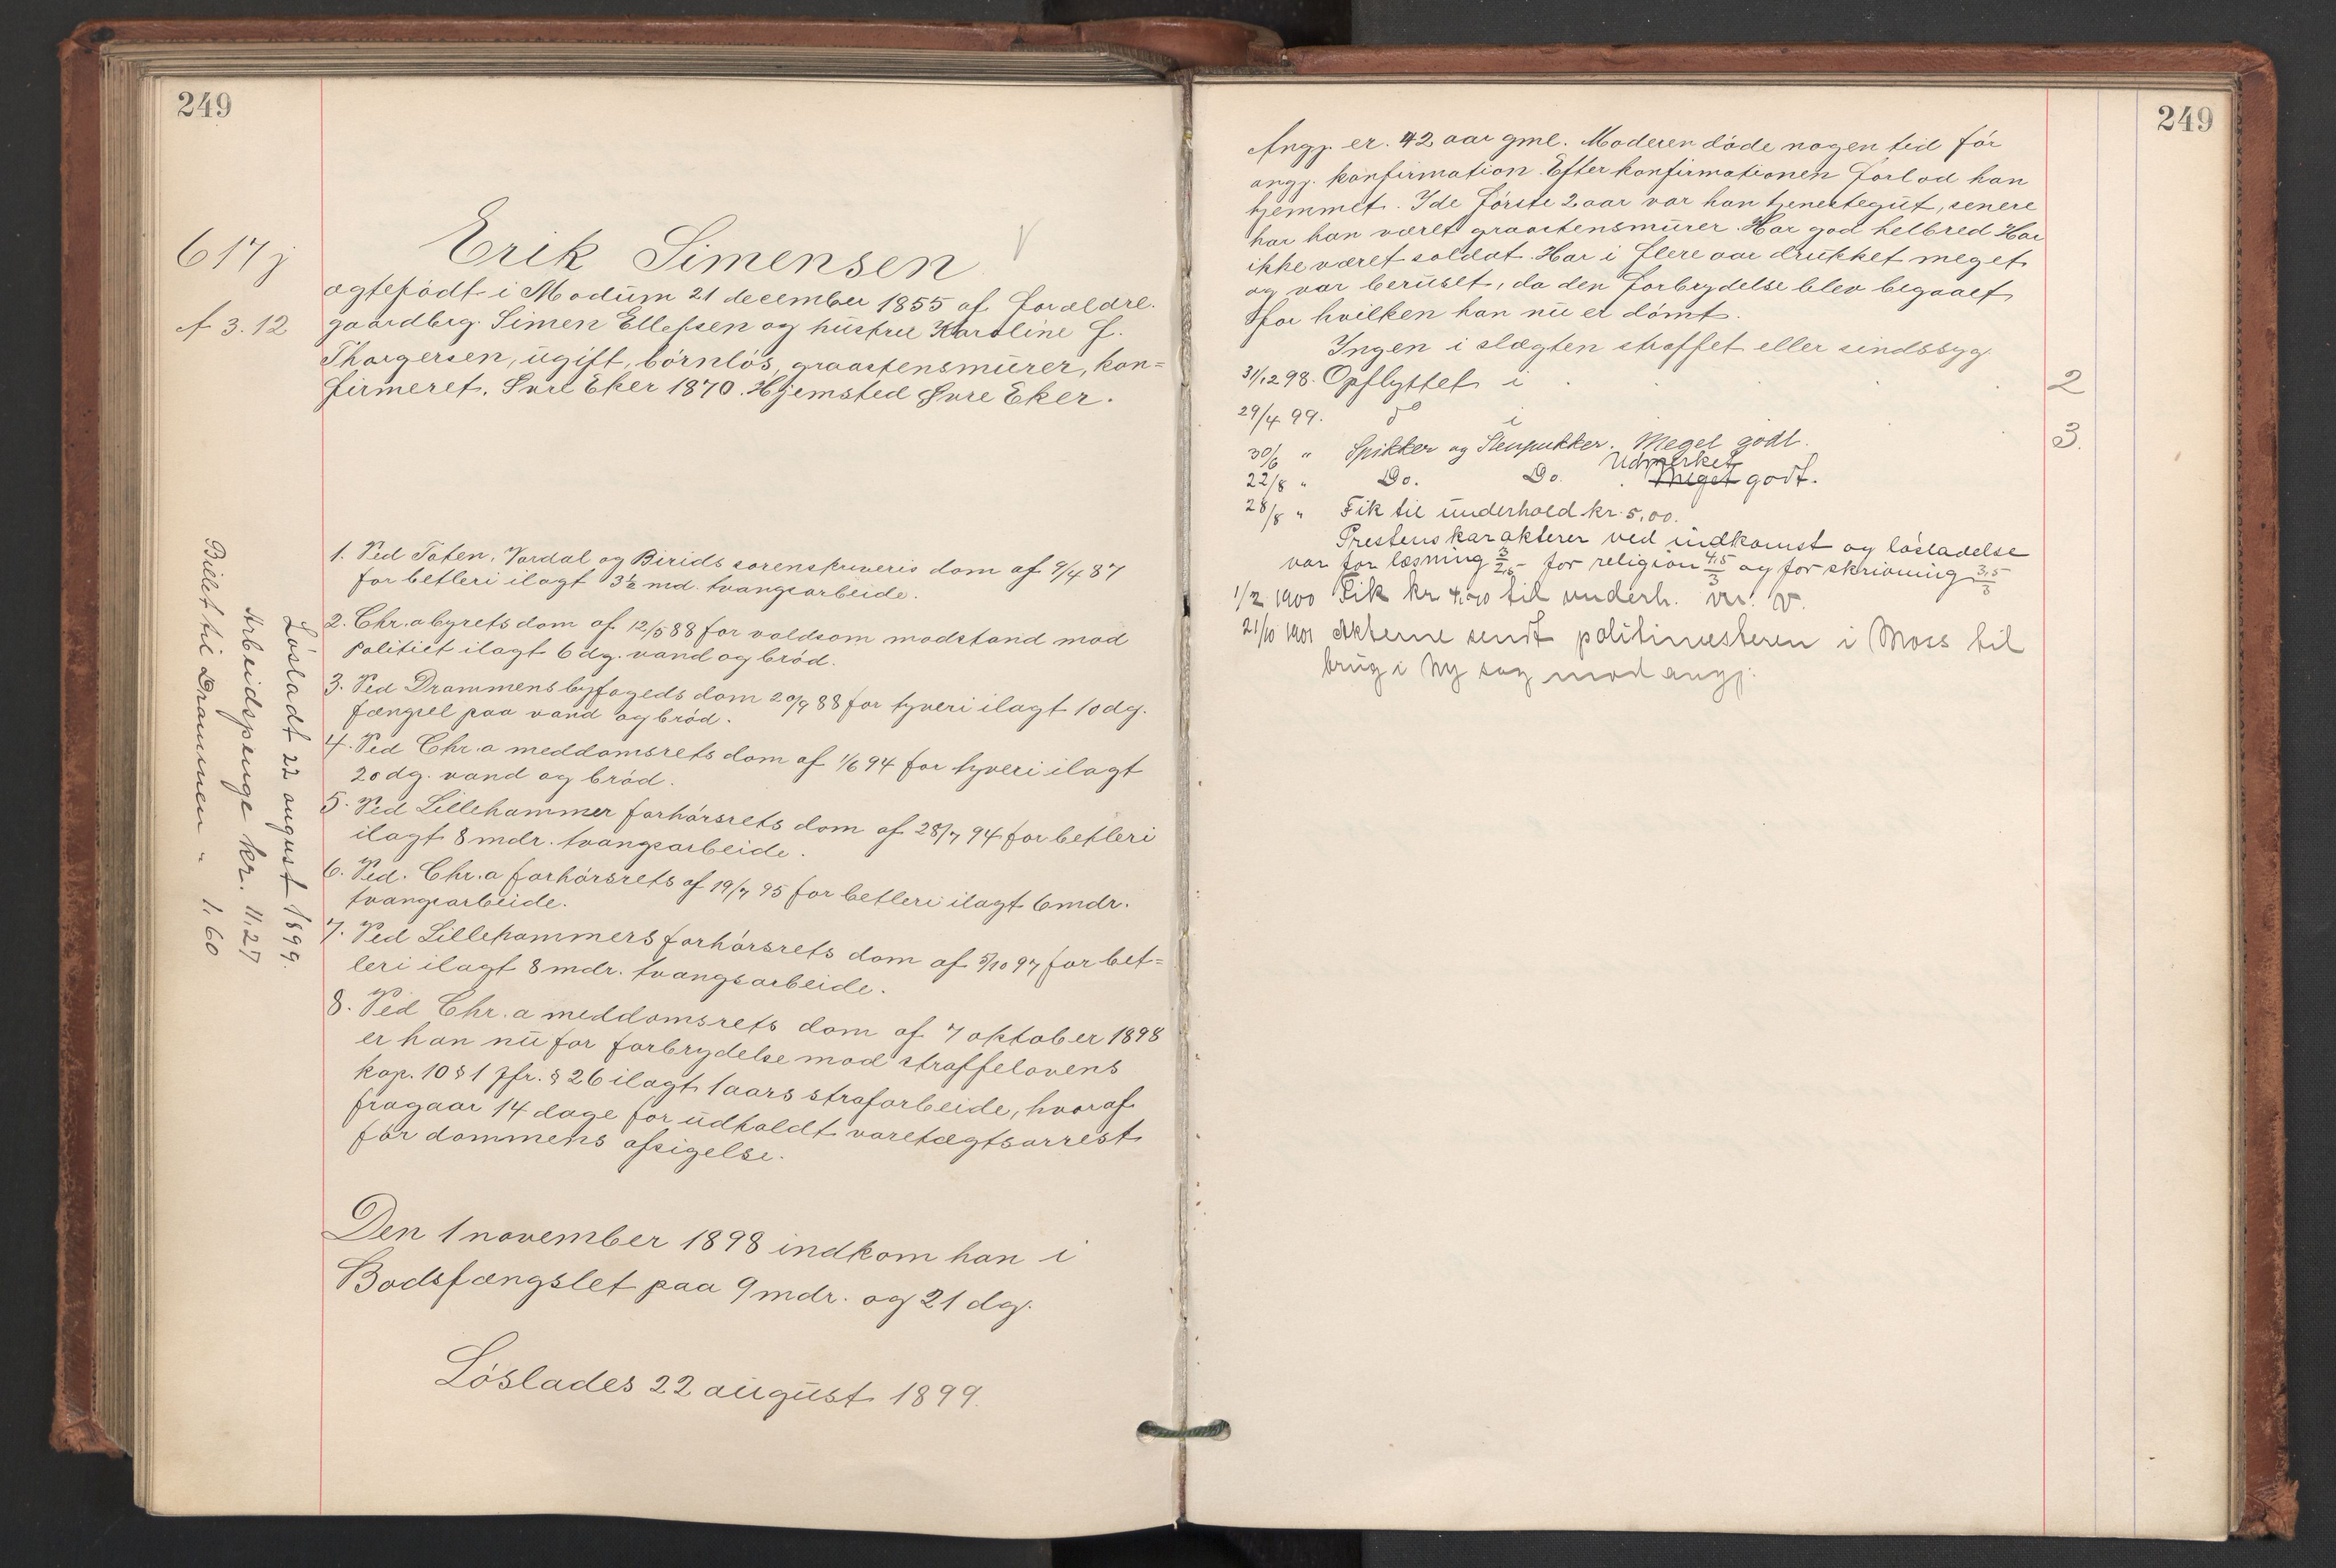 249
617 j
f 3.12
Erik Simensen
ægtefödt i Modum 21 december 1855 af foræ​ldre
gaardbrg. Simen Ellefsen og hustru Karoline f.
Thorgersen, ugift, börnlös, graastensmurer, kon=
firmeret. Övre Eker 1870. Hjemsted Övre Eker.
1. Ved Toten, Vardal og Birids sorenskriveris dom af 9/4 87
for betleri ilagt 3½ md. tvangsarbeide.
2. Chr.a byrets dom af 12/5 88 for voldsom modstand mod
politiet ilagt 6 dg. vand og bröd.
3. Ved Drammens byfogeds dom 20/9 88 for tyveri ilagt 10 dg.
fængsel paa vand og bröd.
4. Ved Chr.a meddomsrets dom af 1/6 94 for tyveri ilagt
20 dg. vand og bröd.
5. Ved Lillehammer forhörsrets dom af 28/7 94 for betleri
ilagt 8 mdr. tvangsarbeide.
6. Ved. Chr.a forhörsrets af 19/7 95 for betleri ilagt 6 mdr.
tvangsarbeide.
7. Ved Lillehammers forhörsrets dom af 5/10 97 for bet=
leri ilagt 8 mdr. tvangsarbeide.
8. Ved Chr.a meddomsrets dom af 7 oktober 1898
er han nu for forbrydelse mod straffelovens
kap. 10 § 1 jfr. § 26 ilagt 1 aars strafarbeide, hvoraf
fragaar 14 dage for udholdt varetægtsarrest
för dommens afsigelse.
Den 1 november 1898 indkom han i
Bodsfængslet paa 9 mdr. og 21 dg.
Löslades 22 august 1899.
Lösladt 22 august 1899.
Arbeidspenge kr. 11,27
Billet til Drammen " 1,60
249
Angj. er 42 aar gml. Moderen döde nogen tid för
angj. konfirmation. Efter konfirmationen forlod han
hjemmet. I de förste 2 aar var han tjenestegut, senere
har han været graastensmurer. Har god helbred. Har
ikke været soldat. Har i flere aar drukket meget
og var beruset, da den forbrydelse blev begaaet,
for hvilken han nu er dömt.
Ingen i slægten straffet eller sindssyg.
31/12 98. Opflyttet i 2
29/4 99. do i 3.
30/6 " Spikker og Stenpukker. Meget godt.
Udmerket
22/8 " Do. Do. Meget godt.
28/8 " Fik til underhold kr. 5,00.
Prestens karakterer ved indkomst og lösladelse
var for læsning 3/2,5 for religion 4,5/3 og for skrivning 3,5/3
1/2 1900 Fik kr til underh.
21/10 1901 Akterne sendt politimesteren i Moss til
brug i ny sag mod angj.